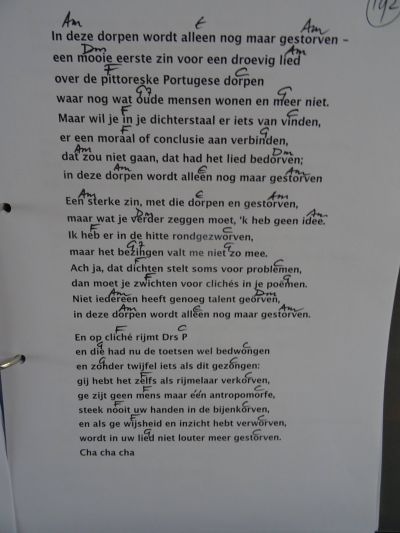 192
Am E Am
In deze dorpen wordt alleen nog maar gestorven –
Dm Am
een mooie eerste zin voor een droevig lied
F C
over de pittoreske Portugese dorpen
G7 C
waar nog wat oude mensen wonen en meer niet.
F C
Maar wil je in je dichterstaal er iets van vinden,
F G
er een moraal of conclusie aan verbinden,
Am Dm
dat zou niet gaan, dat had het lied bedorven;
Am E Am
in deze dorpen wordt alleen nog maar gestorven
Am E Am
Een sterke zin, met die dorpen en gestorven,
Dm Am
maar wat je verder zeggen moet, 'k heb geen idee.
F C
Ik heb er in de hitte rondgezworven,
G7 C
maar het bezingen valt me niet zo mee.
F C
Ach ja, dat dichten stelt soms voor problemen,
F G
dan moet je zwichten voor clichés in je poëmen.
Am Dm
Niet iedereen heeft genoeg talent georven,
Am E Am
in deze dorpen wordt alleen nog maar gestorven.
F C
En op cliché rijmt Drs P
G C
en die had nu de toetsen wel bedwongen
G C
en zonder twijfel iets als dit gezongen:
F C
gij hebt het zelfs als rijmelaar verkorven,
F C
ge zijt geen mens maar één antropomorfe,
F C
steek nooit uw handen in de bijenkorven,
F C
en als ge wijsheid en inzicht hebt verworven,
G C
wordt in uw lied niet louter meer gestorven.
Cha cha cha